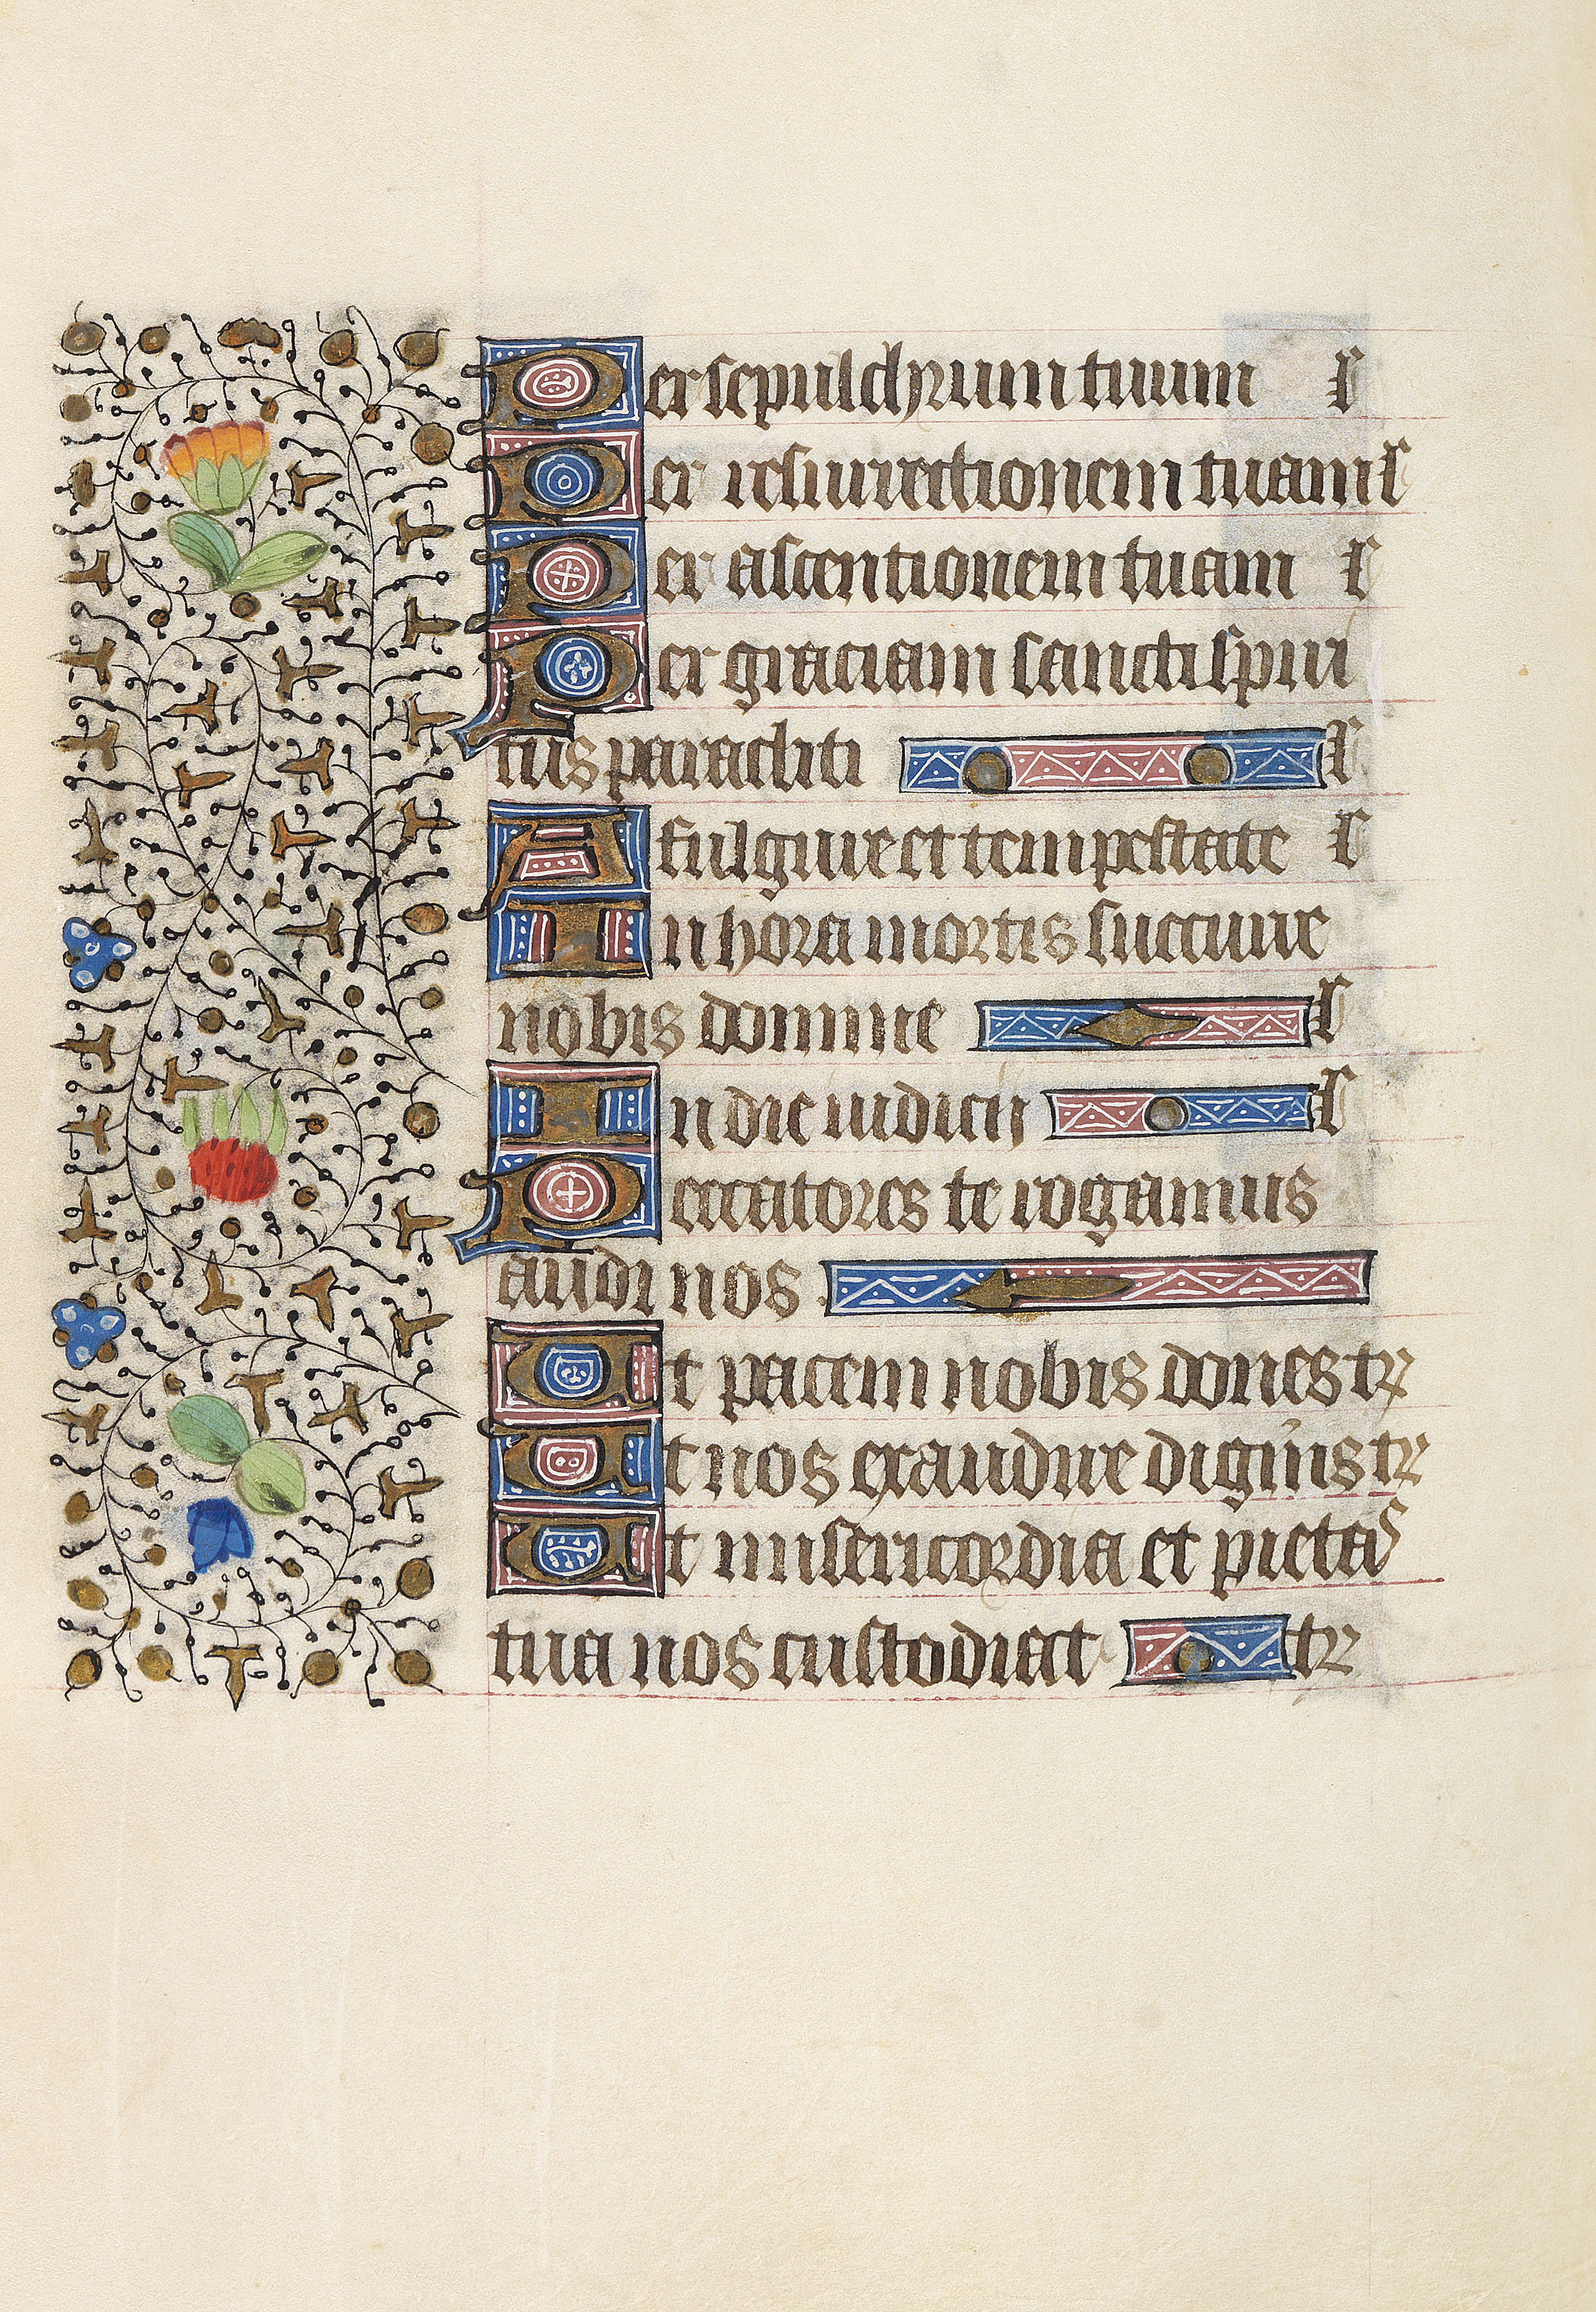 Per sepulchrum tuum l
Per resurrectionem tuam l
Per ascentionem tuam l
Per graciam sancti spiri
tus paracliti l
A fulgure et tempestate l
In hora mortis succurre
nobis domine l
In die iudicii l
Peccatores te rogamus
audi nos
Ut pacem nobis dones tr
Ut nos exaudire digīnis tr
Ut misericordia et pietas
tua nos custodiat tr